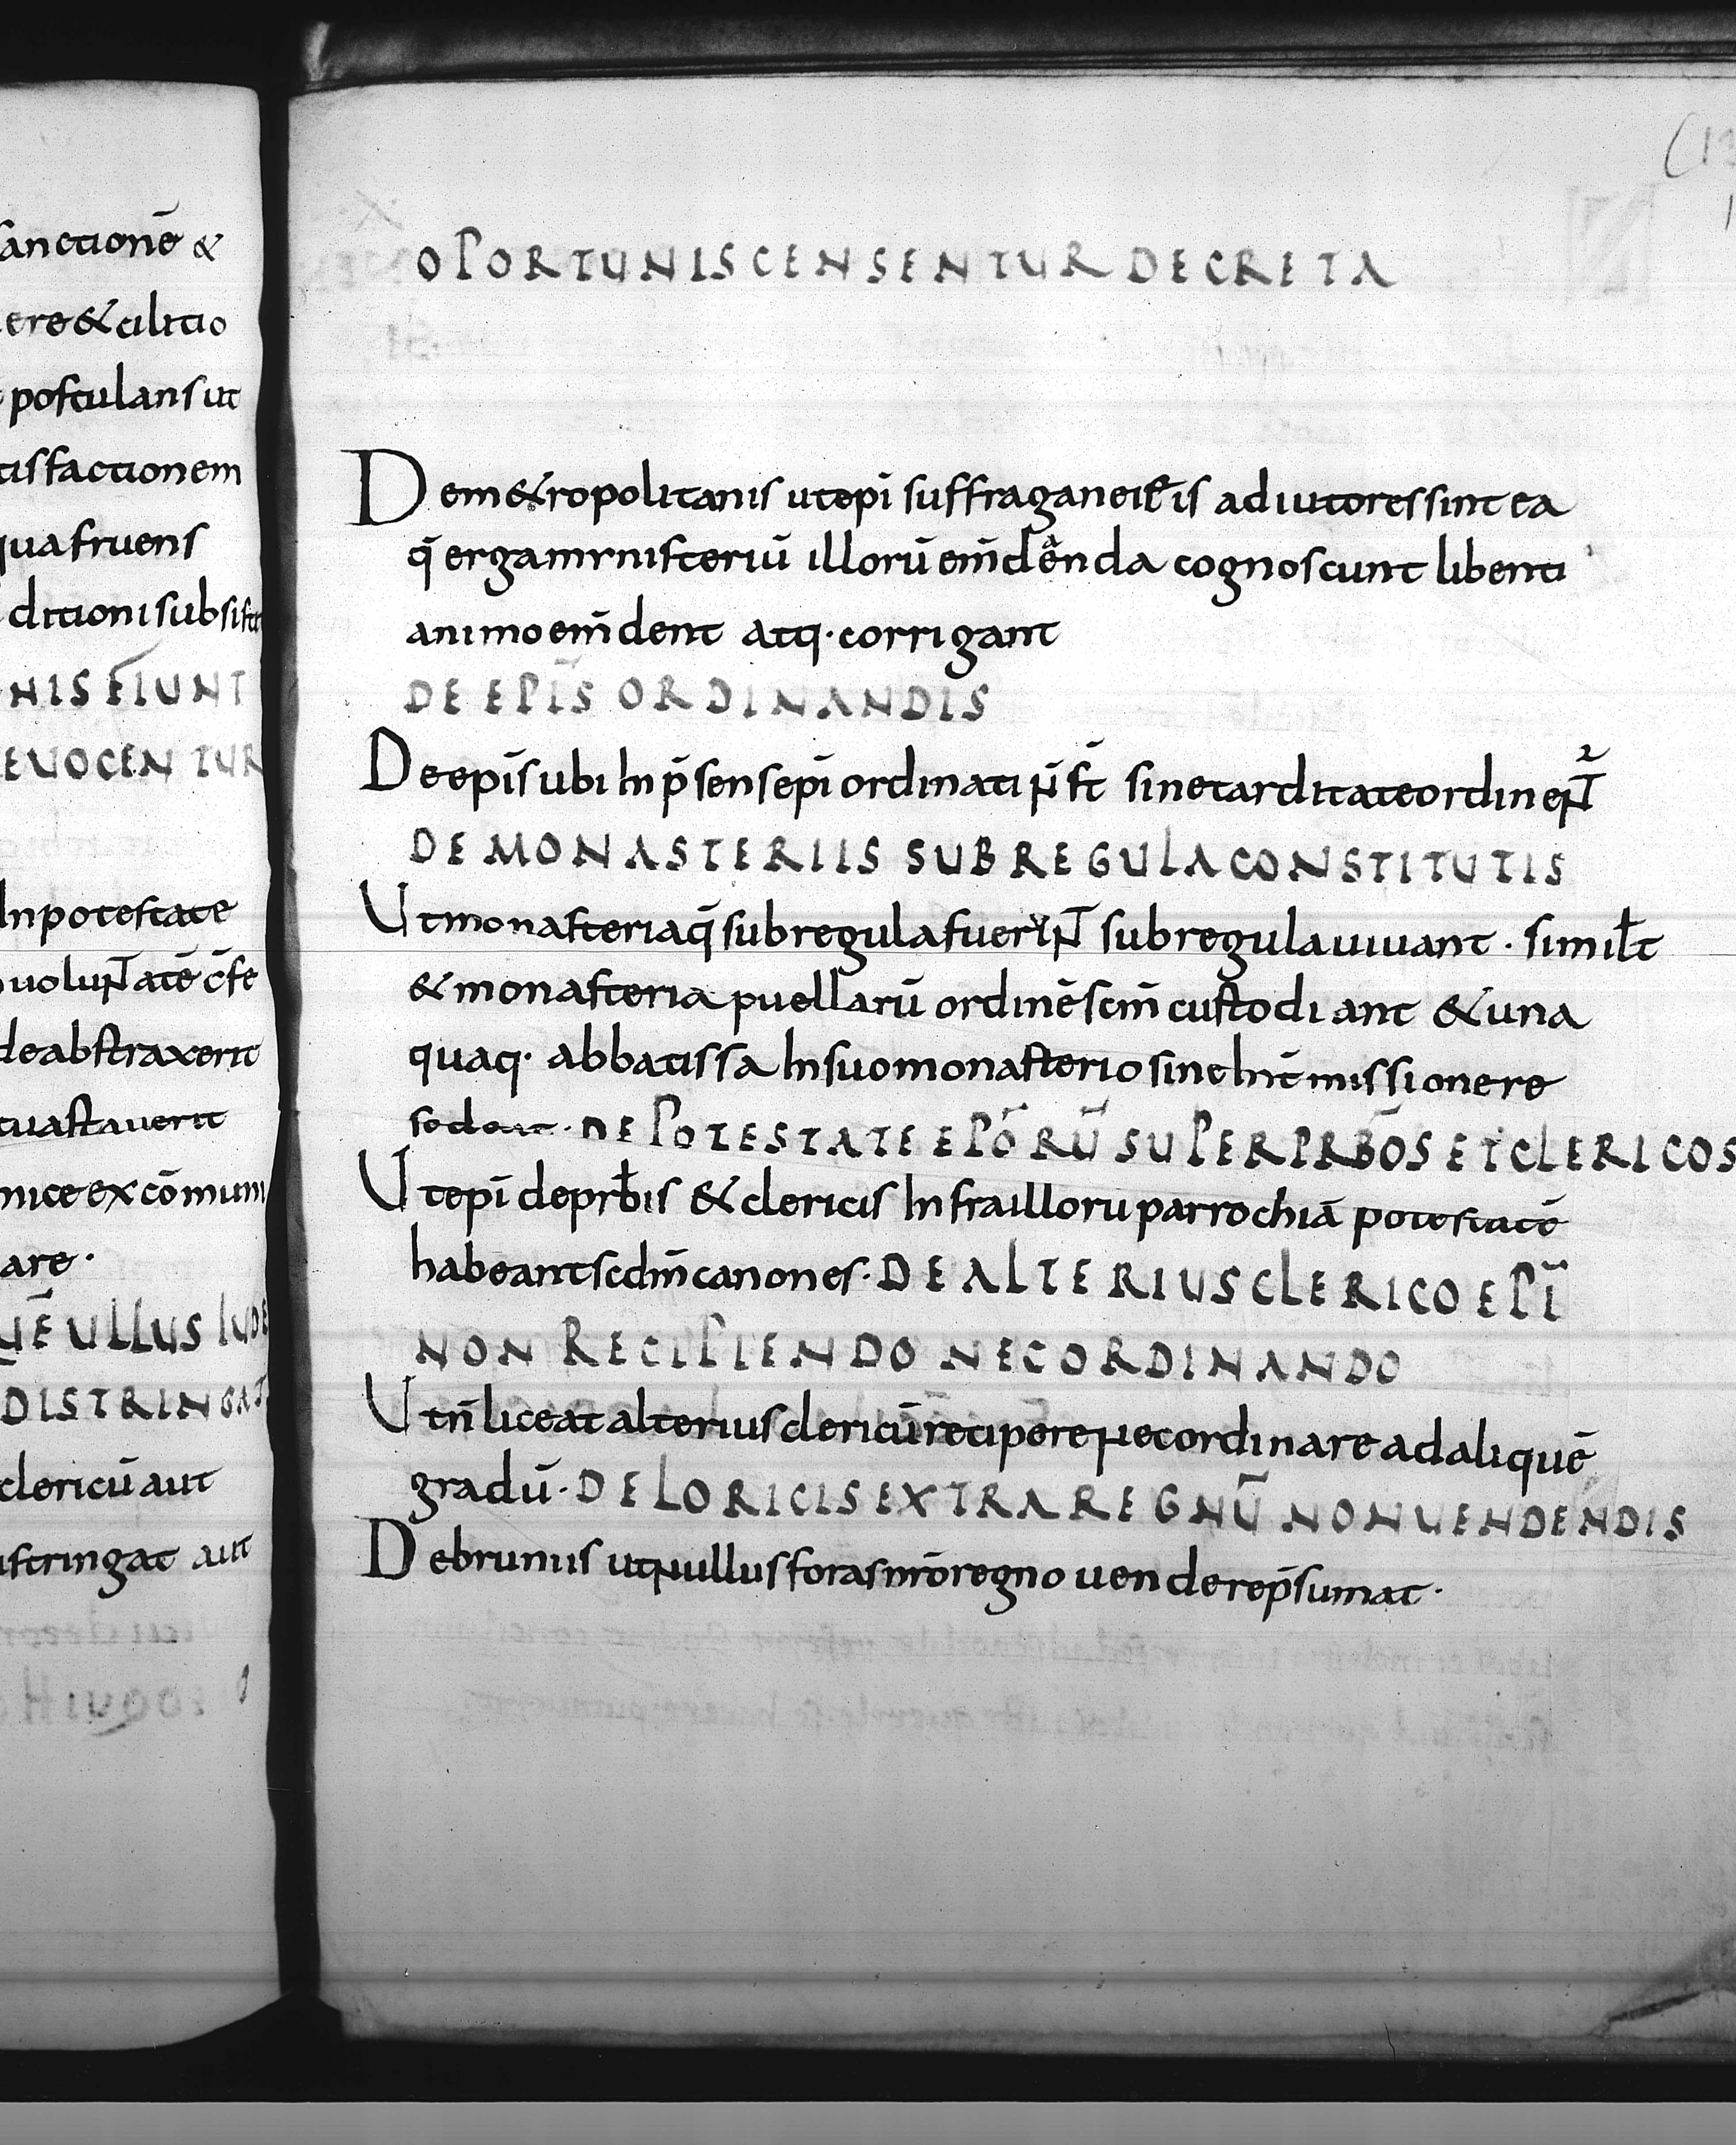 sanctionē &
ere & cilicio
postulans ut
tisfactionem
qua fruens
ditioni subsist
NIS FIUNT
EUOCENTUR
In potestate
uoluNTatē c̄fe
deabstraxerit
tuastauerit
nice excōmuni
are ·
NĒ ULLUS IUDE
DISTRINGAT
clericū aut
stringat aut
OPORTUNIS CENSENTUR DECRETA
Dem&ropolitanis ut epī suffraganei eis adiutores sint ea
q̄ erga mrnisteriū illorū em̄denda cognoscunt libenti
animo em̄dent atq· corrigant
DE EPĪS ORDINANDIS
De epīs ubi In p̄sens epī ordinati N̄ st̄ sine tarditate ordineNT̄
DE MONASTERIIS SUB REGULA CONSTITUTIS
Ut monasteria q̄ sub regula fueriNT sub regula uiuant · simil̄t
& monasteria puellarū ordinē scm̄ custodiant & una
quaq· abbatissa In suo monasterio sine Int̄missione re
sedeat · DE POTESTATE EPŌRŪ SUPER PRB̄OS ET CLERICOS
Ut epī de prb̄is & clericis Infra illoru parrochiā potestatē
habeant scdm̄ canones · DE ALTERIUS CLERICO EPĪ
NON RECIPIENDO NEC ORDINANDO
Ut n̄ liceat alterius clericū recipere Nec ordinare ad aliquē
gradū · DE LORICIS EXTRA REGNŪ NON UENDENDIS
De bruniis ut Nullus foras nr̄o regno uendere p̄sumat ·